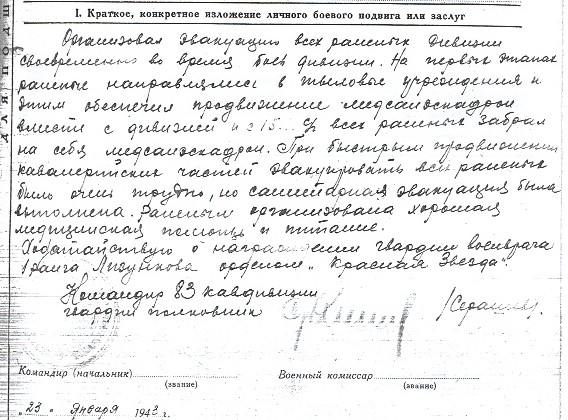 ДЛЯ ПОДШ
I. Краткое, конкретное изложение личного боевого подвига или заслуг
Организовал эвакуацию всех раненых дивизии
своевременно во время боев дивизии. На первых этапах
раненые направлялись в тыловые учреждения и
этим обеспечил продвижение медсанэскадрон
вместе с дивизией и с 15... всех раненых забрал
на себя медсанэскадрон. При быстрым продвижении
кавалерийских частей эвакуировать всех раненых
было очень трудно, но санитарная эвакуация была
выполнена. Раненым организована хорошая
медицинская помощь и питание.
Ходатайствую о награждении гвардии военврача
1 ранга орденом „Красная Звезда".
Командир 83 кавдивизии
гвардии полковник
Командир (начальник)
(звание)
Военный комиссар
(звание)
„23" января 1943 г.